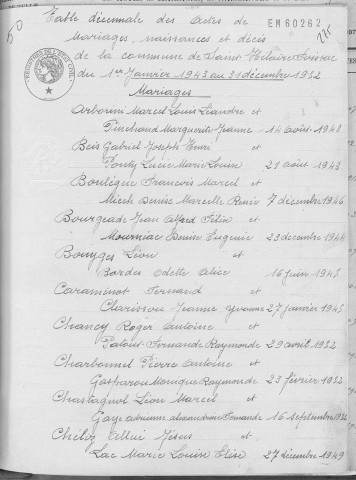 EM60262
Table décennale des Actes de
Mariages, naissances et décès
de la commune de Saint Hilaire Foissac
du 1er Janvier 1943 au 31 décembre 1952
Mariages
Marcel Louis Léandre et
Marguerite Jeanne 14 août 1948
Beis Gabriel Joseph Henri et
Lucie Marie Louise 21 août 1943
Boutègue François Marcel et
Miech Denise Marcelle Renée 7 décembre 1946
Bourgeade Jean Alfred Félix et
Mourniac Denise Eugénie 23 décembre 1944
Bouyges Léon et
Bordes Odette Alice 16 juin 1945
Caraminot Fernand et
Clarissou Jeanne Yvonne 27 janvier 1945
Chancy Roger Antoine et
Patout Fernande Raymonde 29 avril 1952
Charbonnel Pierre Antoine et
Gasparoux Monique Raymonde 23 février 1952
Chastagnol Léon Marcel et
Gaye Adrienne Alexandrine Fernande 16 septembre
Jésus et
Lac Marie Louise Elise 27 décembre 1949